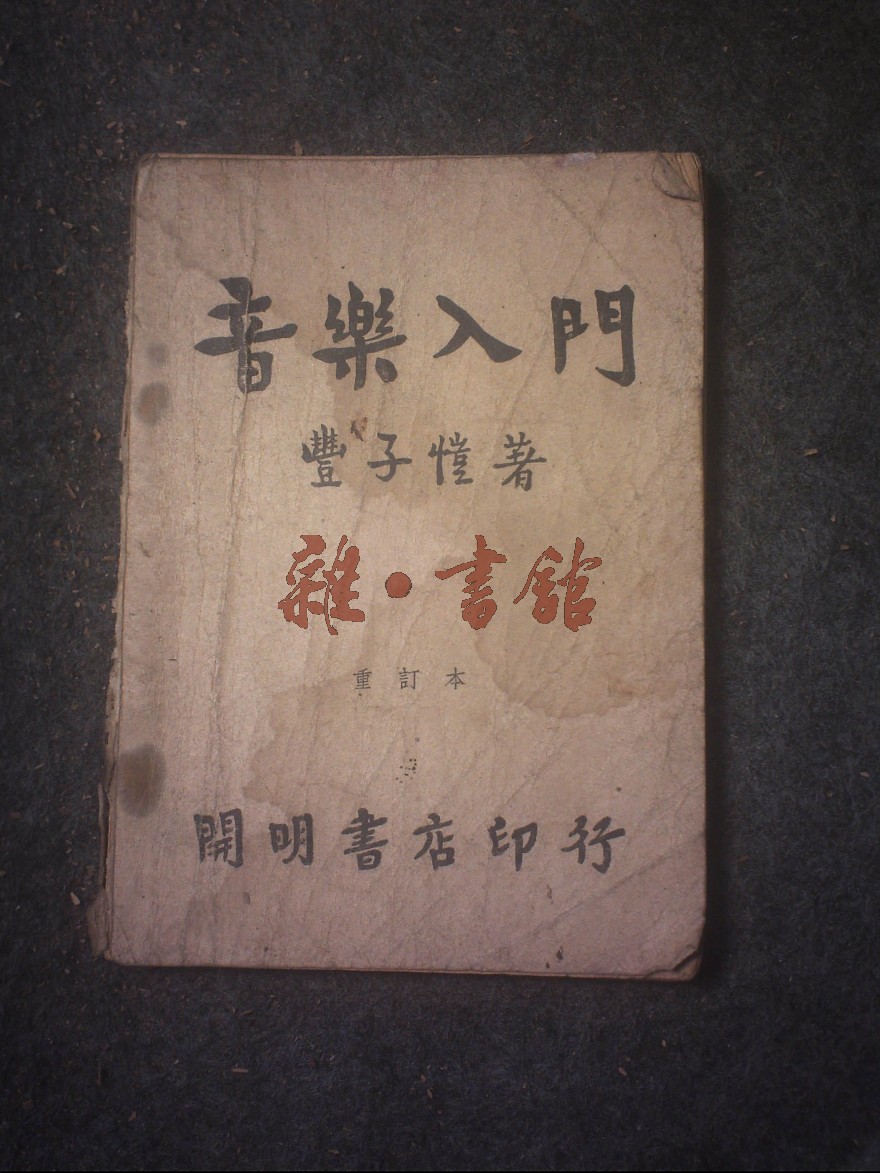 音樂入門
豐子愷著
雜·書館
重訂本
開明書店印行